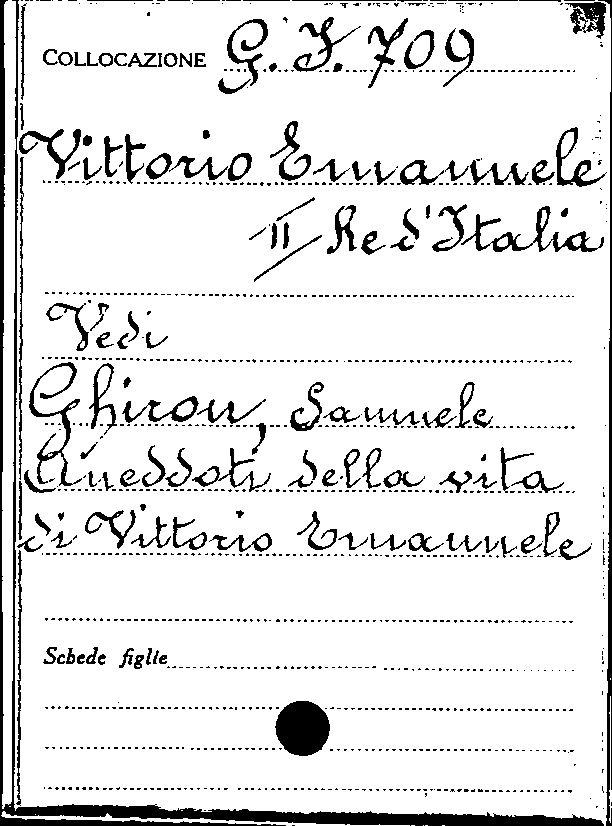 COLLOCAZIONE G. F. 709
Vittorio Emanuele
II Re d'Italia
Vedi
Ghiron, Samuele
Aneddoti della vita
di Vittorio Emanuele
Schede figlie